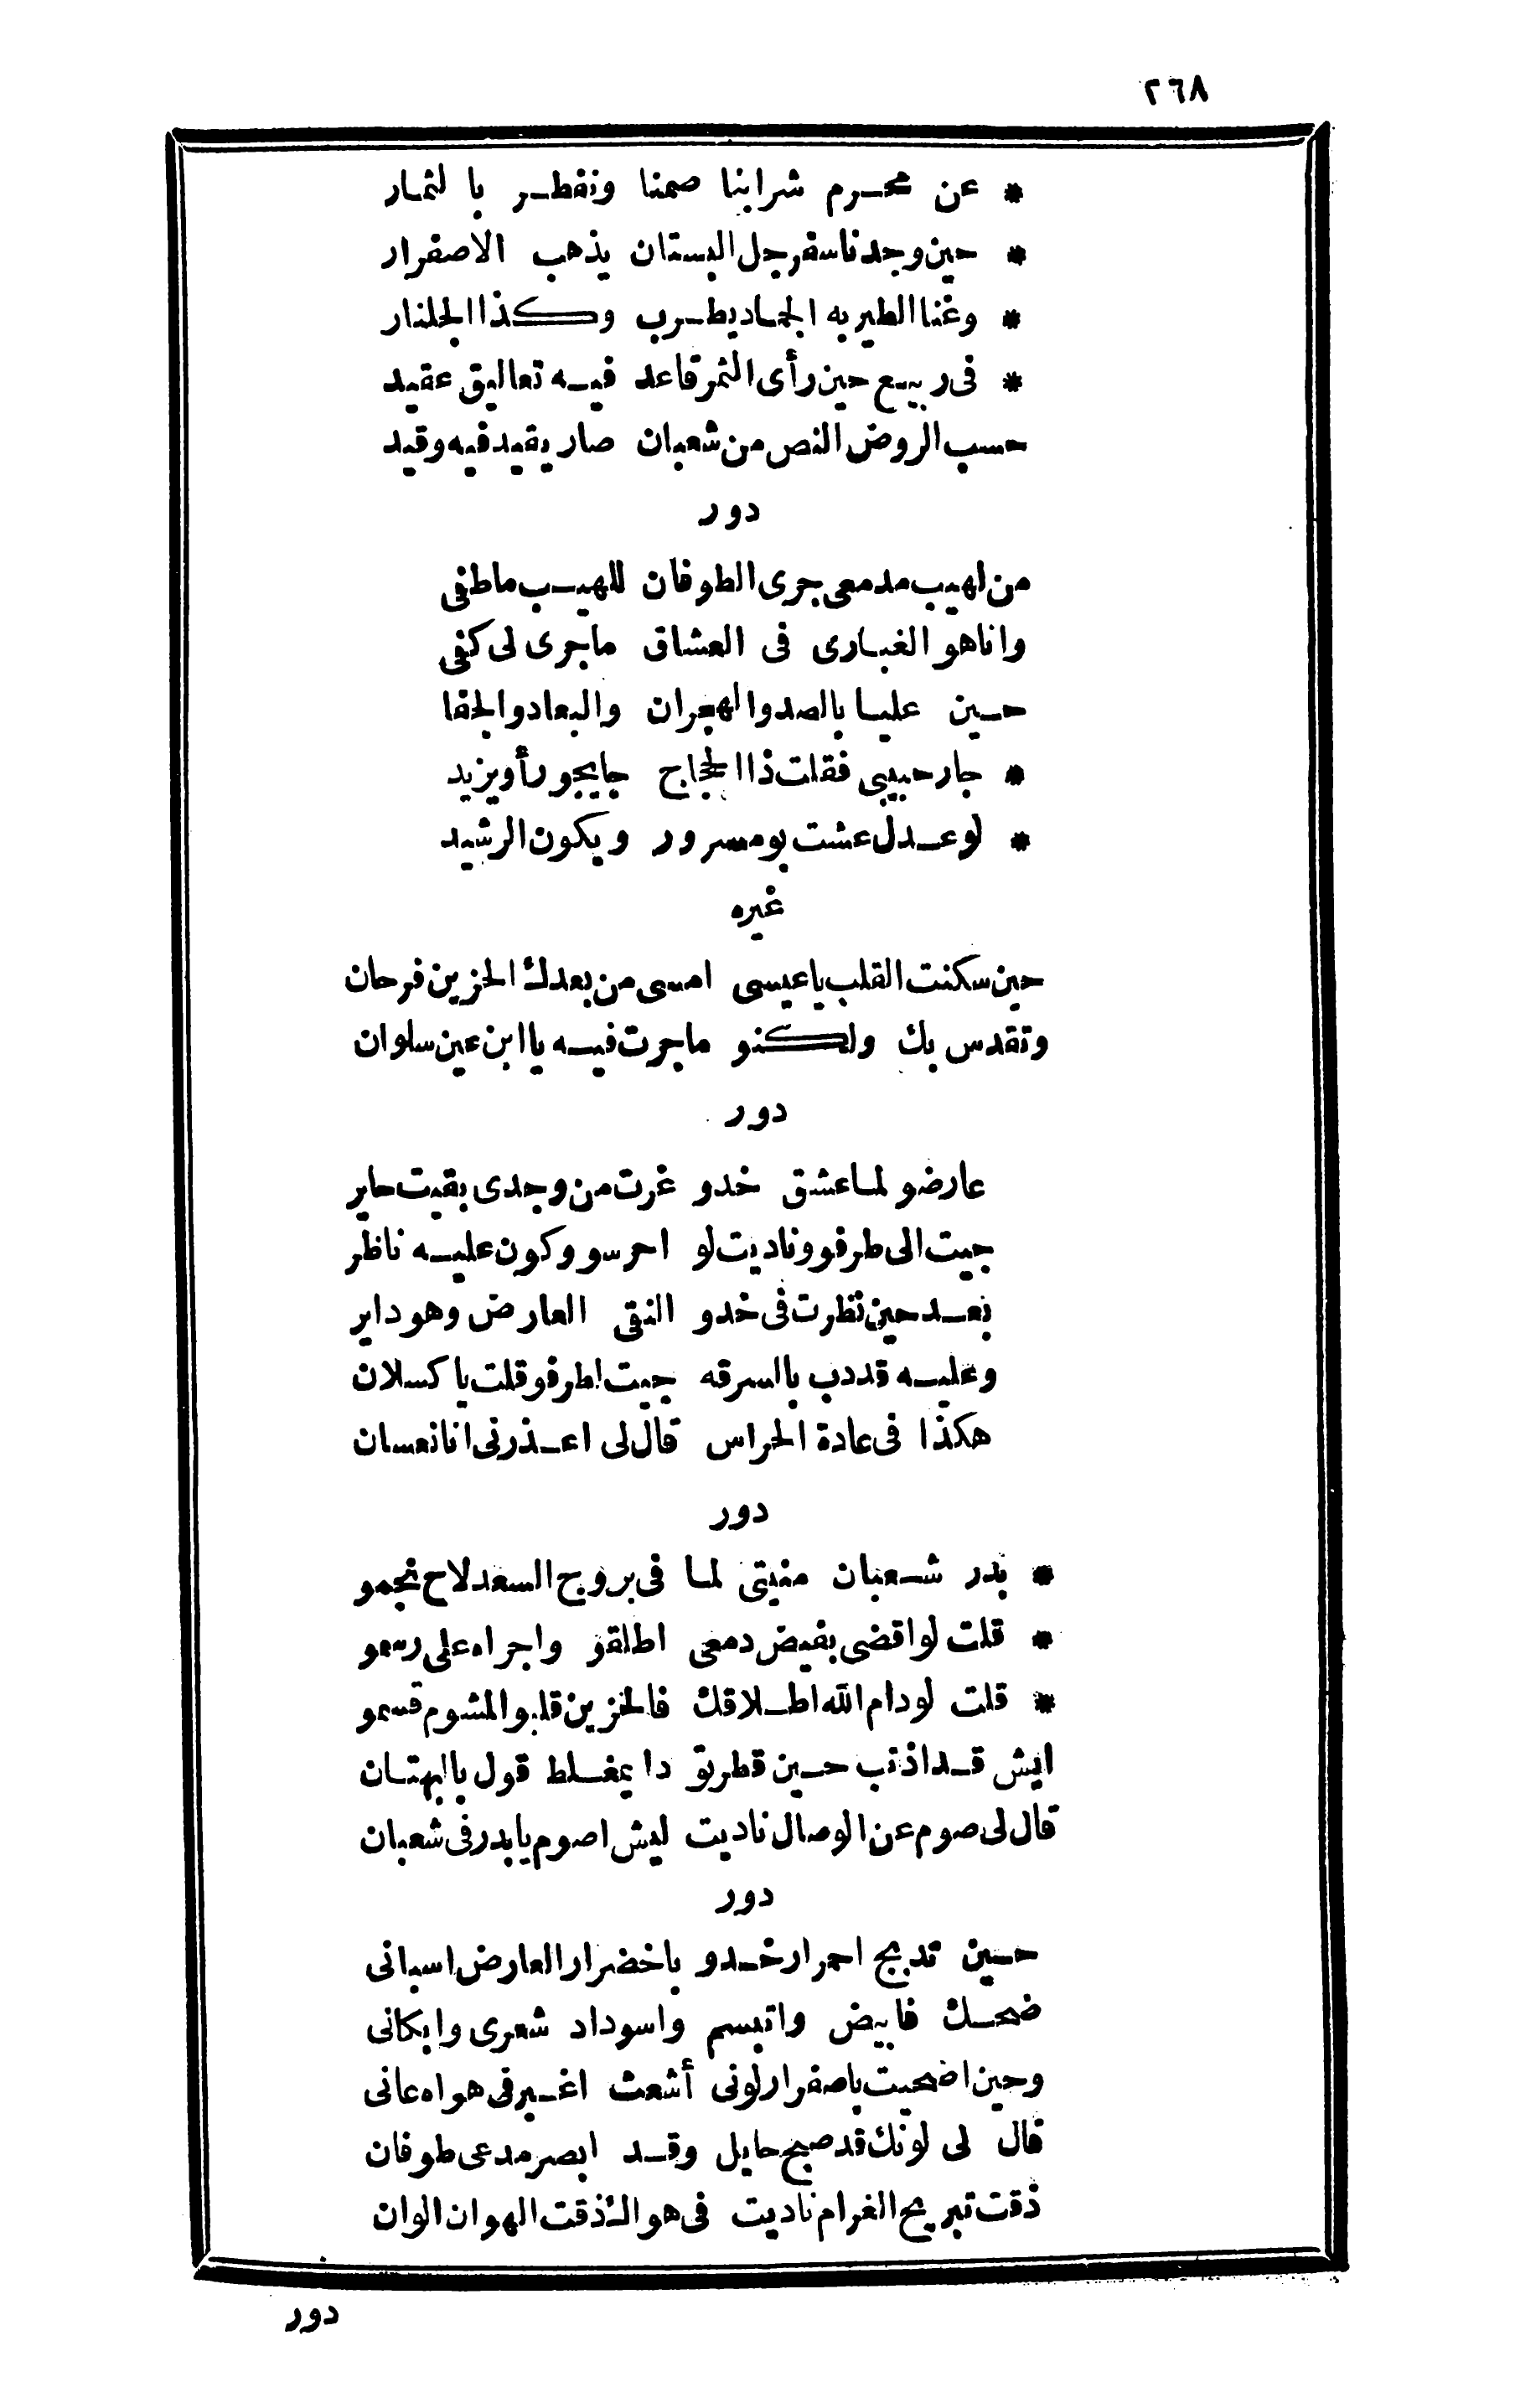 ٢٦٨
* عن محرم شرابنا صمنا ونفطر با لثمار
* حين وجدنا سفرجل البستان يذهب الاصفرار
* وغنا الطير به الجماد يطرب وكذا الجلنار
* فى ربيع حين رأى الثمر قاعد فيه تعاليق عقيد
حسب الروض النص من شعبان صار يقيد فيه وقيد
دور
من لهيب مدمعى جرى الطوفان للهيب ماطفى
وانا هو الغبارى فى العشاق ماجرى لى كفى
حين عليا بالصد والهجران والبعاد والجفا
* جار حبيبى فقلت ذا الحجاج جا يجور أو يزيد
* لو عدل عشت بو مسرور ويكون الرشيد
غيره
حين سكنت القلب ياعيسى امسى من بعدك الحزين فرحان
وتقدس بك ولكنو ماجرت فيه يا ابن عين سلوان
دور
عارضو لما عشق خدو غرت من وجدى بقيت حاير
جيت الى طرفو وناديت لو احرسو وكون عليه ناظر
بعد حين نظرت فى خدو النقى العارض وهو داير
وعليه قد دب بالسرقه جيت لطرفو قلت يا كسلان
هكذا فى عادة الحراس قال لى اعذرنى انا نعسان
دور
* بدر شعبان منيتى لما فى بروج السعد لاح نجمو
* قلت لو اقضى بفيض دمعى اطلقو واجراه على رسمو
* قلت لو دام الله اطلاقك فالحزين قلبو المشوم قسمو
ايش قد اذنب حين قطرتو دا يمغلط قول بالبهتان
قال لى صوم عن الوصال ناديت ليش اصوم يابدر فى شعبان
دور
حين تدبج احمرار خدو باخضرار العارض اسبانى
ضحك فابيض واتبسم واسوداد شعرى وابكانى
وحين اضحيت باصفرار لونى أشعث اغبر فى هواه عانى
قال لى لونك قد صبح حايل وقد ابصر مدعى طوفان
ذقت تبريح الغرام ناديت فى هواك ذقت الهوان الوان
دور